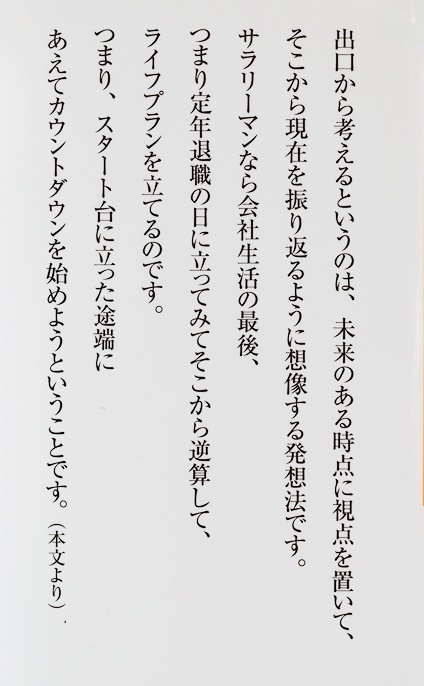 出口から考えるというのは、未来のある時点に視点を置いて、
そこから現在を振り返るように想像する発想法です。
サラリーマンなら会社生活の最後、
つまり定年退職の日に立ってみてそこから逆算して、
ライフプランを立てるのです。
つまり、スタート台に立った途端に
あえてカウントダウンを始めようということです。（本文より）